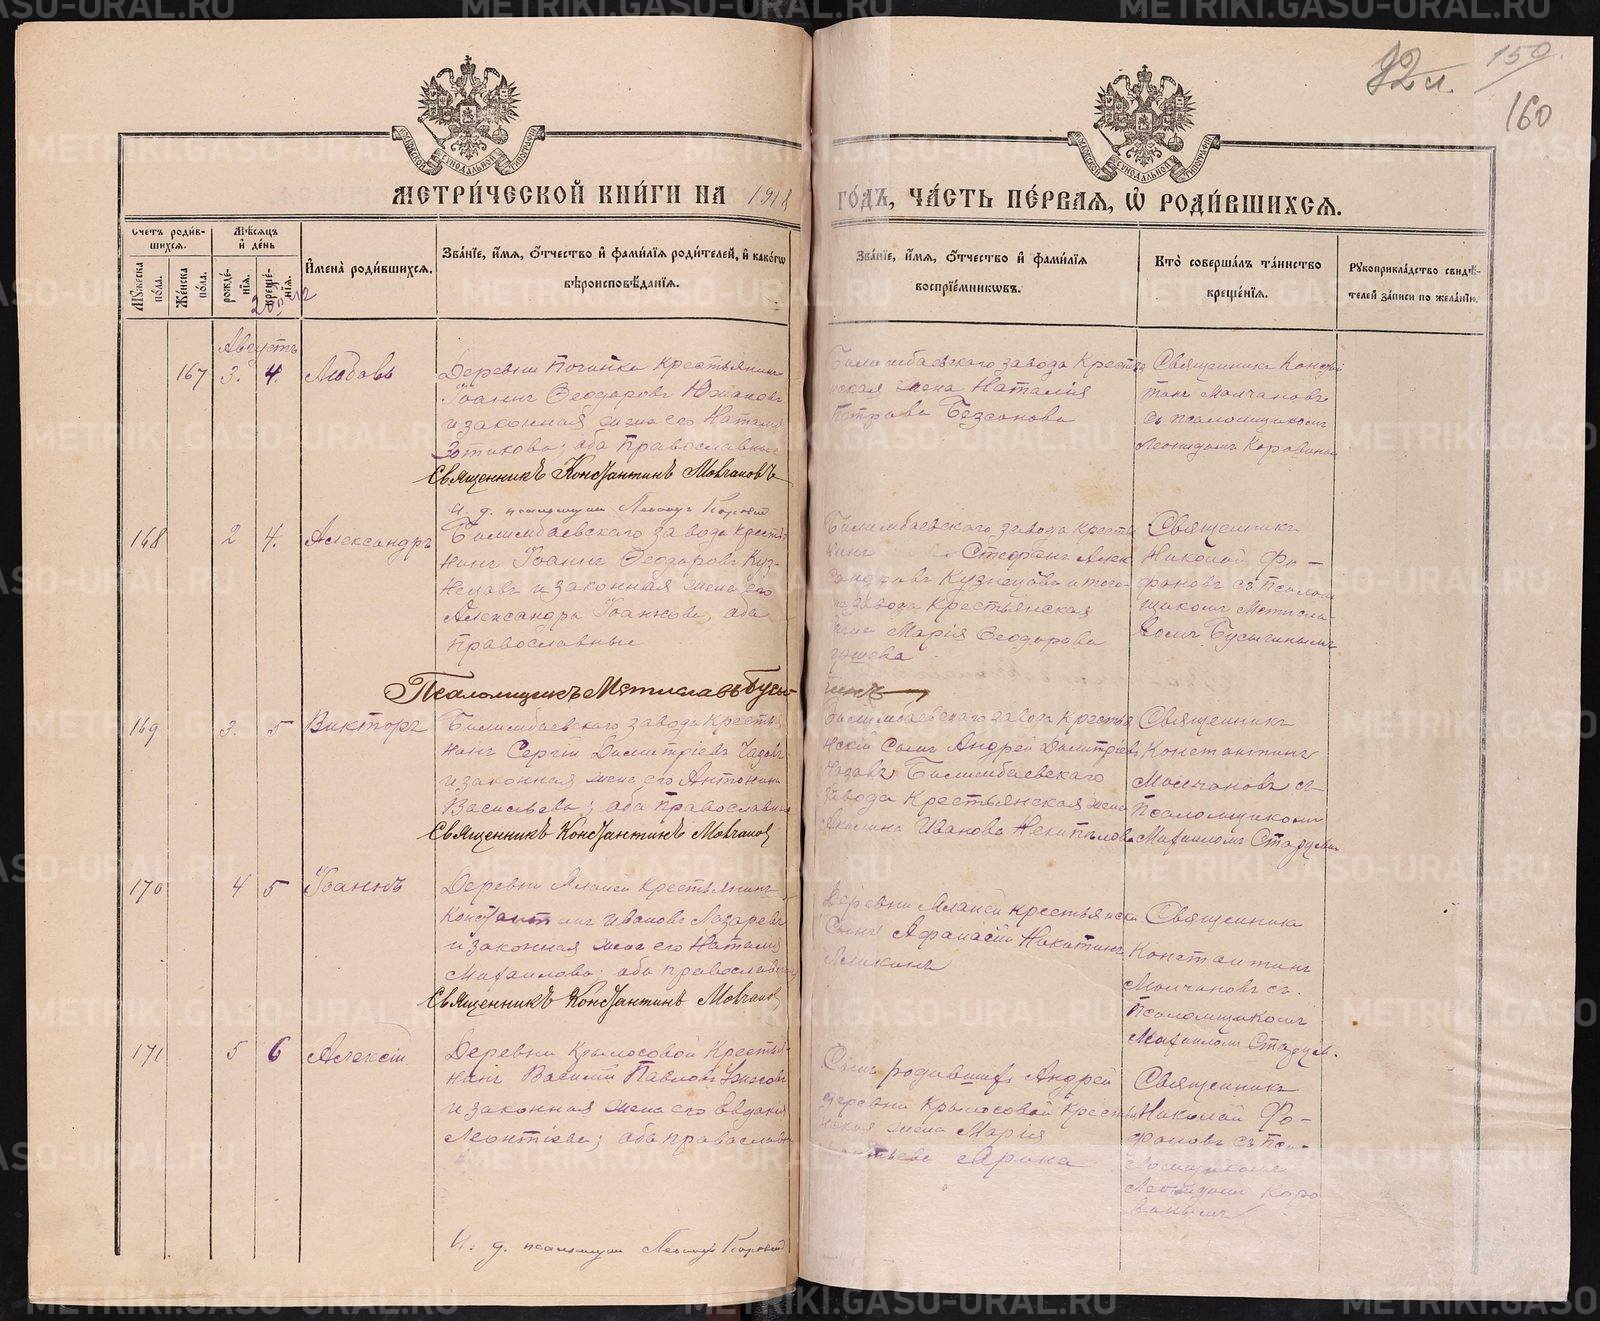 82 л. 159
160
МЕТРИ́ЧЕСКОЙ КНИ́ГИ НА 1918
ГО́ДЪ, ЧА́СТЬ ПЕ́РВАЯ, Ѡ҆ РОДИ́ВШИХСЯ.
Счетъ родив-
шихся.
Мужеска пола.
Женска пола.
Мѣсяцъ и день
рожде́-
нія.
креще́-
нія.
Имена родившихся.
Званіе, имя, отчество и фамилія родителей, и какого
вѣроисповѣданія.
Званіе, имя, отчество и фамилія
воспріемниковъ.
Кто совершалъ таинство
крещенія.
Рукоприкладство свидѣ-
телей записи по желанію.
Августъ
167 3. 4. Любовь
Деревни Починка Крестьянинъ
Іоаннъ Ѳеодоровъ
и законная жена его Наталія
Зотикова; оба Православные
Священникъ Константинъ Молчановъ
И. д. псаломщика Леонидъ Коровинъ
Билимбаевскаго завода Крестья
нская жена Наталія
Петрова Безсонова
Священникъ Констан
тинъ Молчановъ
съ псаломщикомъ
Леонидомъ Коровинымъ
168 2 4. Александръ
Билимбаевскаго завода Кресть
нинъ Іоаннъ Ѳеодоровъ Куз-
нецовъ и законная жена его
Александра Іоаннова, оба
православные
Псаломщикъ Мстиславъ Бусы-
гинъ
Билимбаевскаго завода Кресть
нинъ Стефанъ Алек
сандровъ Кузнецовъ и того-
же завода Крестьянская
жена Марія Ѳеодорова
Священникъ
Николай Фо-
фановъ съ Псалом
щикомъ Мстисла-
вомъ Бусыгинымъ
169 3. 5 Викторъ
Билимбаевскаго завода Кресть
нинъ Сергій Димитріевъ Чазовъ
и законная жена его Антонина
Васильева; оба православные
Священникъ Константинъ Молчановъ
Билимбаевскаго завода Крестья
нскій Сынъ Андрей Димитріевъ
Чазовъ Билимбаевскаго
завода Крестьянская жена
Акилина Иванова Некипѣлова
Священникъ
Константинъ
Молчановъ съ
Псаломщикомъ
Михаиломъ
170 4 5 Іоаннъ
Деревни Крестьянинъ
Константинъ Ивановъ Лазаревъ
и законная жена его Наталія
Михаилова; оба православные
Священникъ Константинъ Молчановъ
Деревни крестьянскій
Сынъ Афанасій Никитинъ
Священникъ
Константинъ
Молчановъ съ
Псаломщикомъ
Михаиломъ
171 5 6 Алексій
Деревни Крылосовой Крестья-
нинъ Василій Павловъ
и законная жена его Евдокія
Леонтіева; оба православные
И. д. псаломщика Леонидъ Коровинъ
Сынъ родившихъ Андрей
деревни Крылосовой Крестья
нская жена Марія
Священникъ
Николай Фо-
фановъ съ Пса-
ломщикомъ
Леонидомъ Коро
винымъ